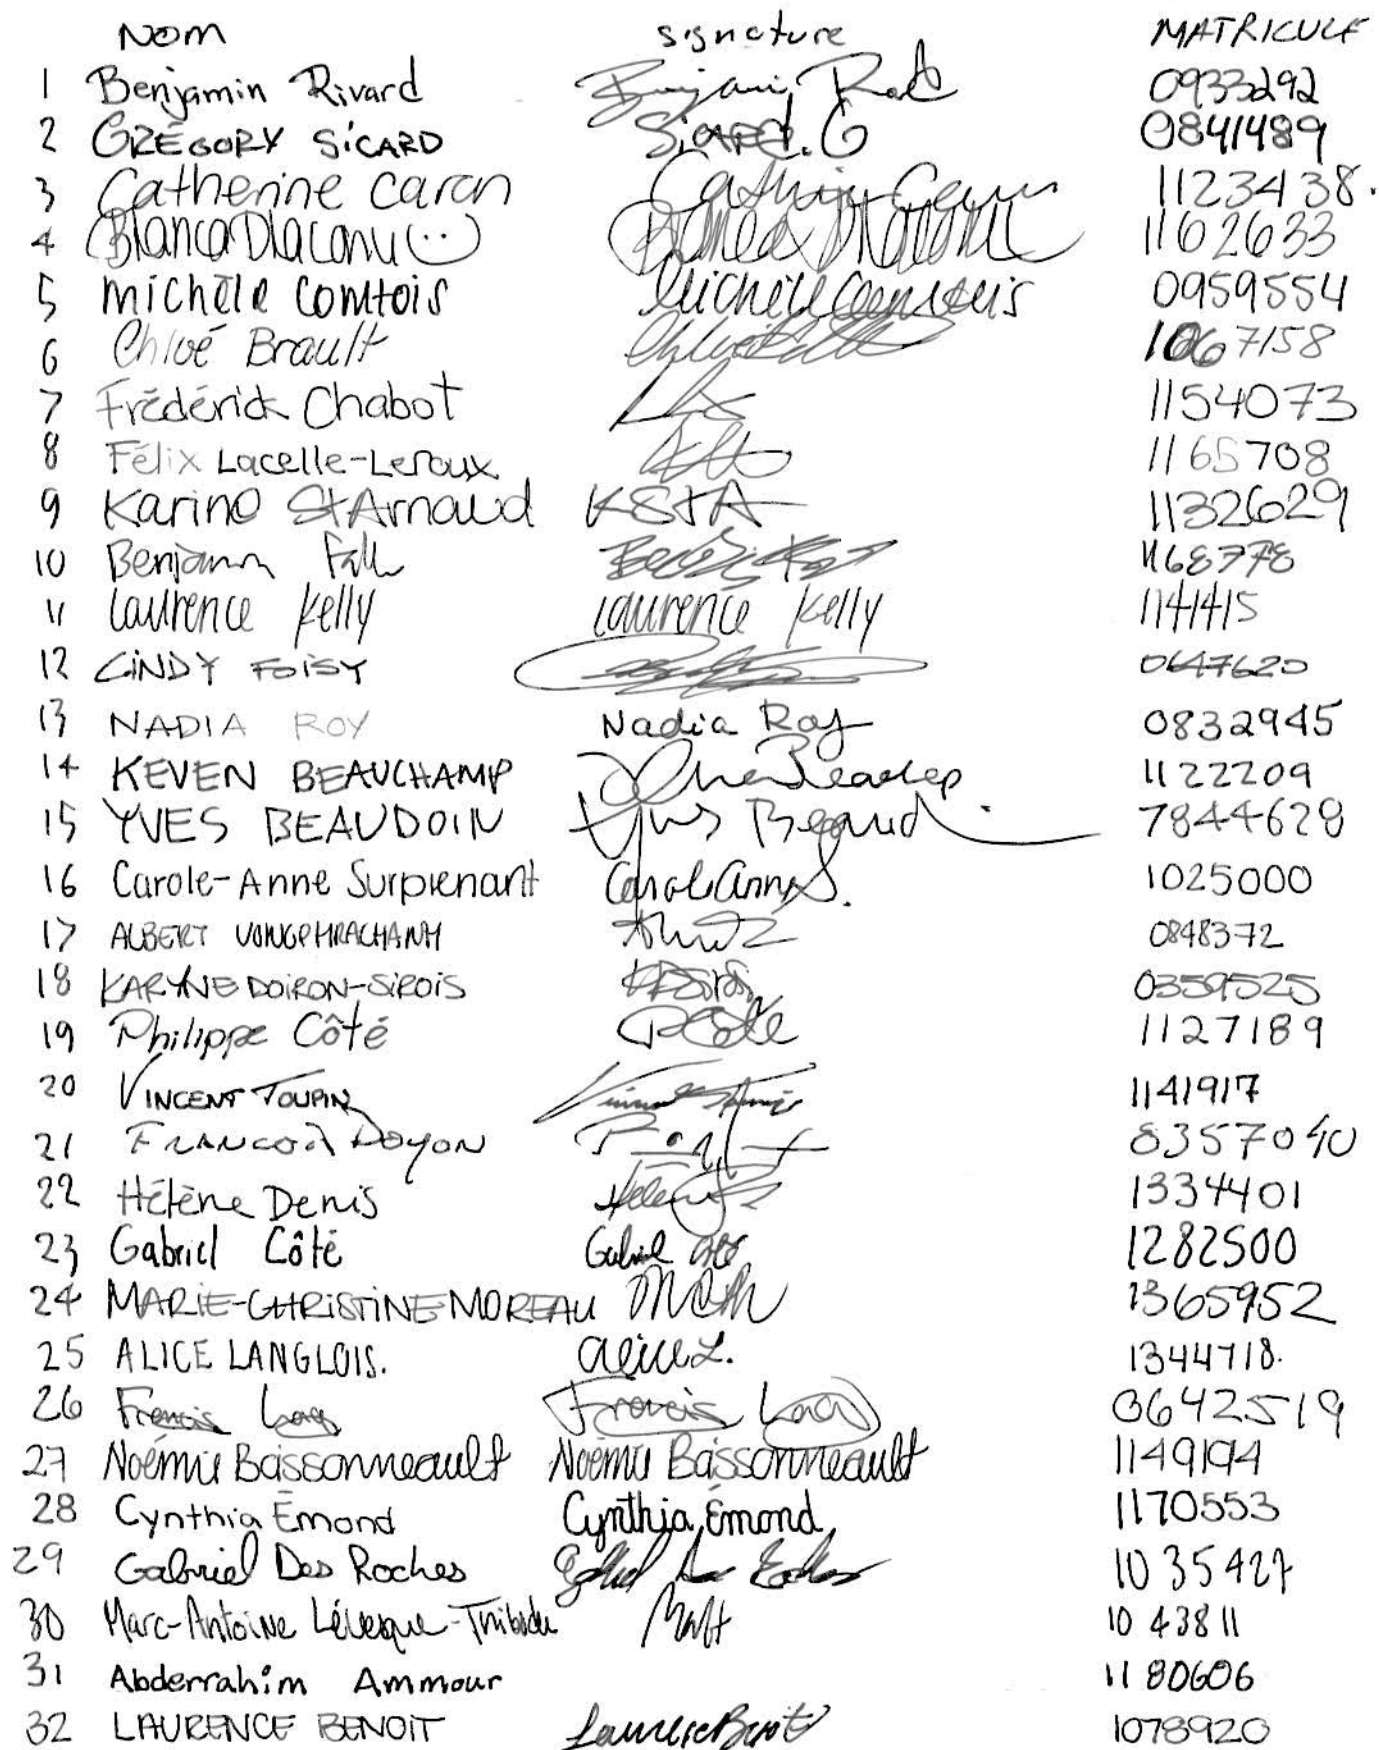 NOM signature MATRICULE
1 Benjamin Rivard 0933292
2 GRÉGORY SICARD SICARD. G 0841489
3 Catherine Caron 1123438.
4 Bianca Diaconu 1102633
5 Michèle Comtois Michèle Comtois 0959554
6 Chloé Brault 1067158
7 Frédérick Chabot 1154073
8 Félix Lacelle-Leroux 1165708
9 Karine St Arnaud KSTA 11326029
10 Benjamin 1168778
11 Laurence Kelly Laurence Kelly 1141415
12 CINDY FOISY 0647620
13 NADIA ROY Nadia Roy 0832945
14 KEVEN BEAUCHAMP 1122209
15 YVES BEAUDOIN Yves 7844628
16 Carole-Anne Surprenant Carole Anne S. 1025000
17 ALBERT VONGPHRACHANH 0848372
18 KARYNE DOIRON-SIROIS 0359525
19 Philippe Côté PCôté 1127189
20 VINCENT TOUPIN 1141917
21 FRANCOIS DOYON 8357040
22 Hélène Denis Hélène 1334401
23 Gabriel Côté Gabriel 1282500
24 MARIE-CHRISTINE MOREAU 1365952
25 ALICE LANGLOIS. Alice L. 1344718.
26 Francis Francis 0642519
27 Noémie Boissonneault Noémie Boissonneault 1149194
28 Cynthia Émond Cynthia Émond 1170553
29 Gabriel Des Roches 1035427
30 Marc-Antoine Lévesque- 1043811
31 Abderrahim Ammour 1180606
32 LAURENCE BENOIT Laurence Benoit 1078920